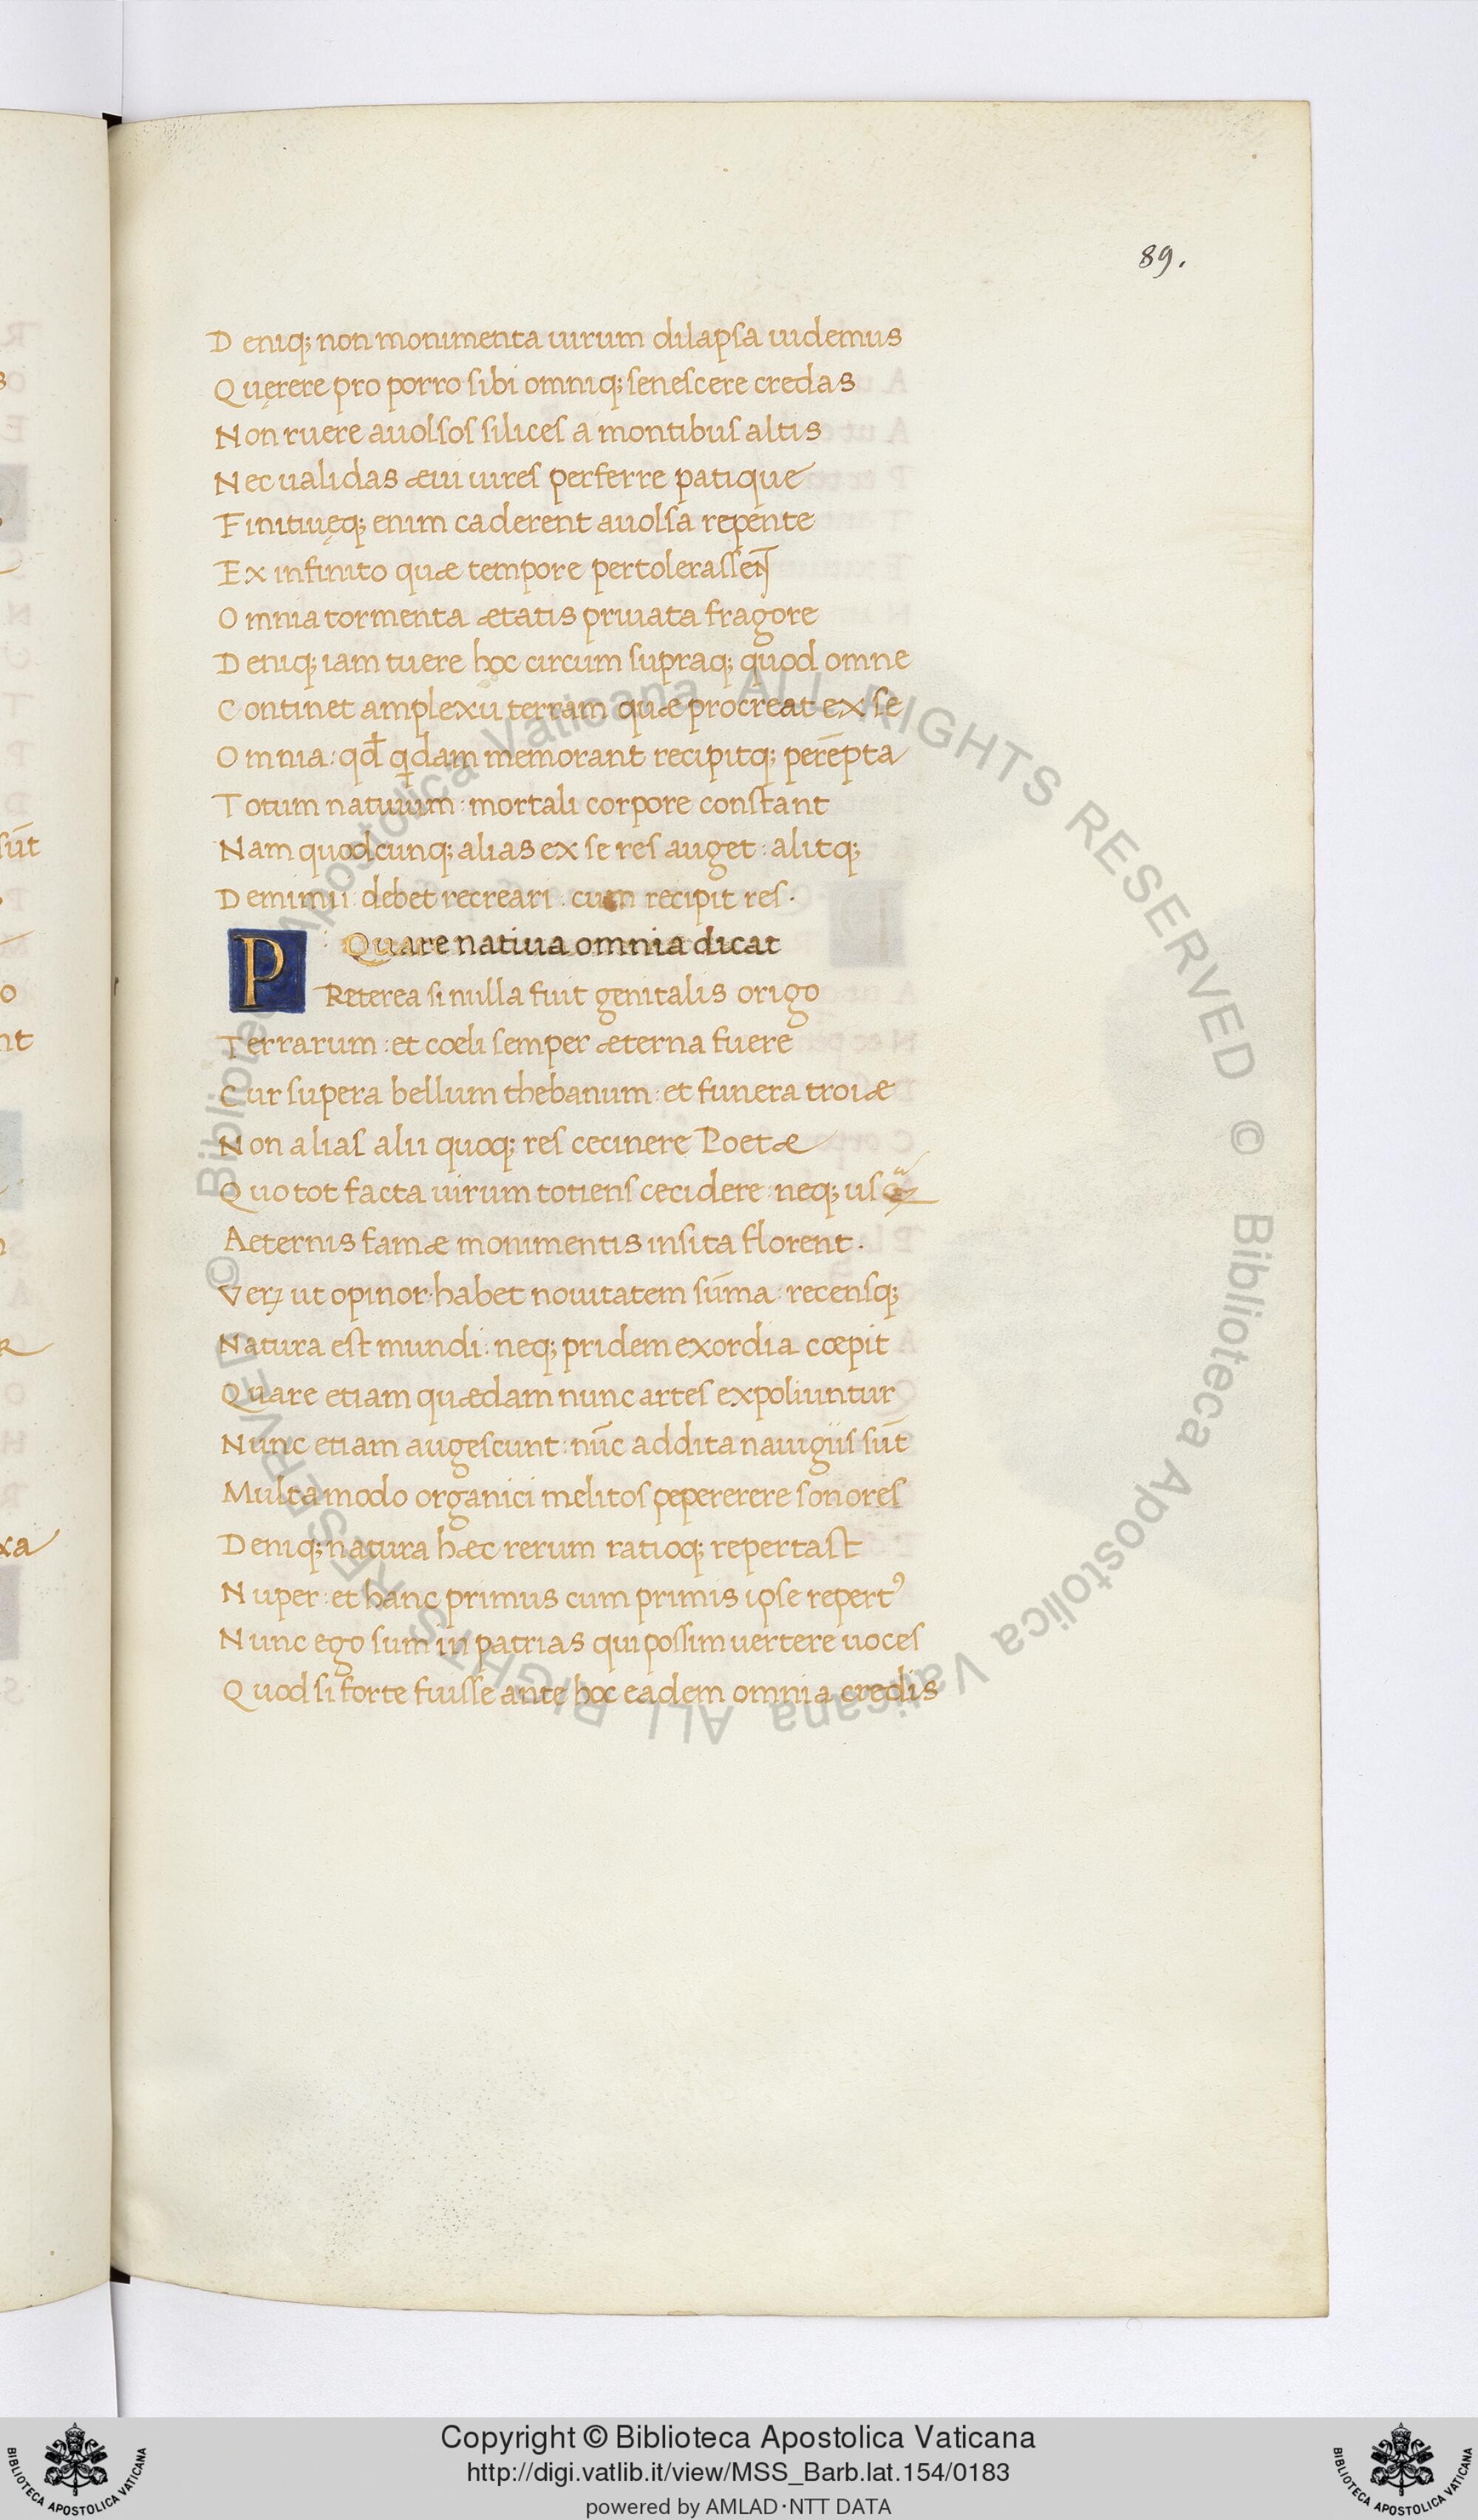 89.
Deniq; non monimenta uirum dilapsa uidemus
Quęrere pro porro sibi omniq; senescere credas
Non ruere auolsos silices a montibus altis
Nec ualidas æui uires perferre patique
Finitiuęq; enim caderent auolsa repente
Ex infinito quæ tempore pertolerassēt
Omnia tormenta ætatis priuata fragore
Deniq; iam tuere hoc circum supraq; quod omne
Continet amplexu terram quæ procreat ex se
Omnia: qđ qdam memorant recipitq; perēpta
Totum natuium: mortali corpore constant
Nam quodcunq; alias ex se res auget: alitq;
Deminui: debet recreari: cum recipit res.
Quare natiua omnia dicat
PReterea si nulla fuit genitalis origo
Terrarum: et cœli semper æterna fuere
Cur supera bellum thebanum: et funera troiæ
Non alias alii quoq; res cecinere Poetæ
Quo tot facta uirum totiens cecidere: neq; usq̃
Aeternis famæ monimentis insita florent.
Veꝝ ut opinor habet nouitatem sūma: recensq;
Natura est mundi: neq; pridem exordia cœpit
Quare etiam quædam nunc artes expoliuntur
Nunc etiam augescunt: nūc addita nauigiis sūt
Multa modo organici melitos pepererere sonores
Deniq; natura hæc rerum ratioq; repertast
Nuper: et hanc primus cum primis ipse repertꝰ
Nunc ego sum in patrias qui possim uertere uoces
Quod si forte fuisse ante hoc eadem omnia credis
© Biblioteca Apostolica Vaticana ALL RIGHTS RESERVED
© Biblioteca Apostolica Vaticana ALL RIGHTS RESERVED
BIBLIOTECA APOSTOLICA VATICANA
Copyright © Biblioteca Apostolica Vaticana
http://digi.vatlib.it/view/MSS_Barb.lat.154/0183
powered by AMLAD·NTT DATA
BIBLIOTECA APOSTOLICA VATICANA